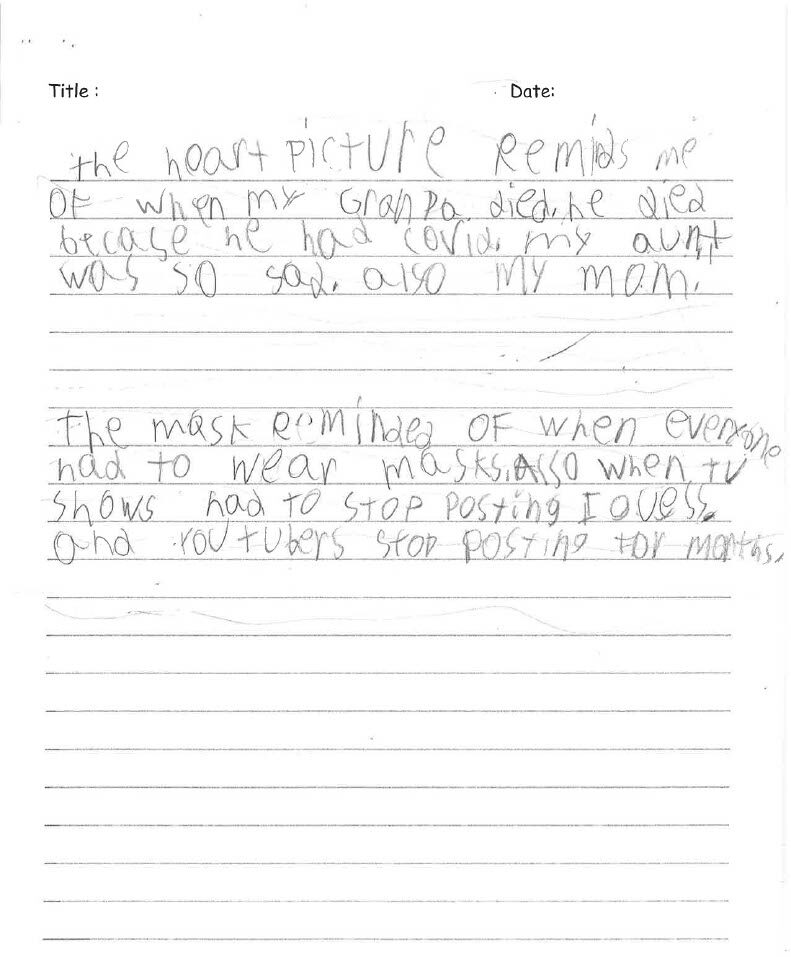 Title :
Date:
the heart picture Remids me
OF when my Granpa died. he died
becase he had covid. my aunt
was so sad. also my mom.
the mask Reminded OF when everyone
had to wear masks. Also when tv
shows had to stop posting I guess.
and YouTubers stop posting for months.